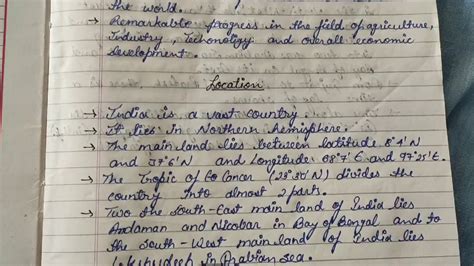 the world.
→ Remarkable progress in the field of agriculture,
Industry, Techonology and overall economic
development.
Location
→ India is a vast country.
→ It lies in Northern hemisphere.
→ The main land lies between latitude 8°4'N
and 37°6'N and Longitude 68°7'E and 97°25'E.
→ The Tropic of Co Cancer (23°30'N) divides the
country into almost 2 parts.
→ Two the South-East main land of India lies
Andaman and Nicobar in Bay of Bengal and to
the South-West main land of India lies
in Arabian sea.